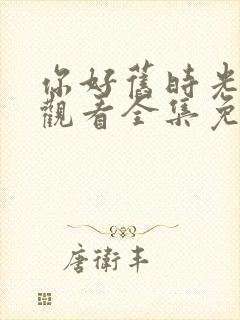 你好舊時光
觀看全集免
唐衛丰